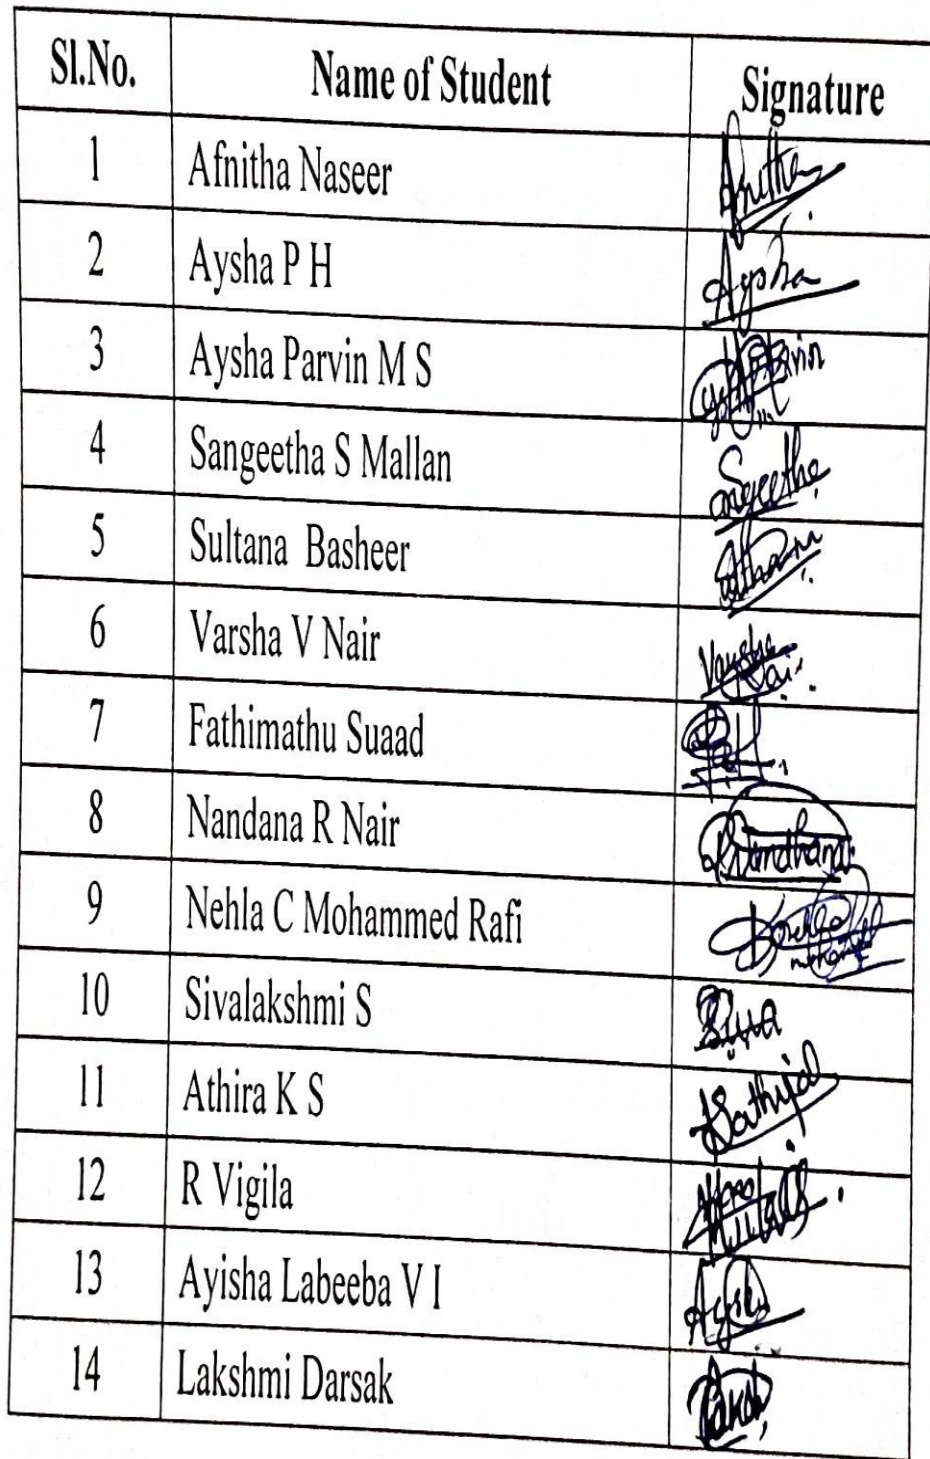 Sl.No. Name of Student Signature
1 Afnitha Naseer
2 Aysha P H Aysha
3 Aysha Parvin M S
4 Sangeetha S Mallan
5 Sultana Basheer
6 Varsha V Nair Varsha
7 Fathimathu Suaad
8 Nandana R Nair
9 Nehla C Mohammed Rafi
10 Sivalakshmi S
11 Athira K S
12 R Vigila
13 Ayisha Labeeba V I
14 Lakshmi Darsak